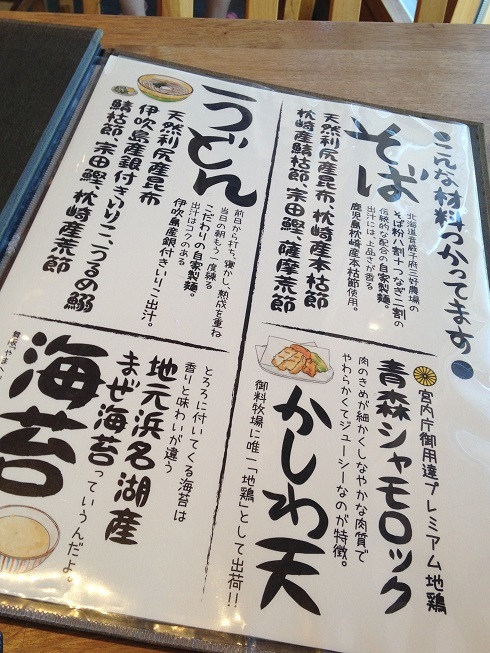 こんな材料つかってます
そば
北海道音威子府三好農場の
そば粉八割＋つなぎ二割の
伝統的な配合の自家製麺。
出汁には、上品さが香る
鹿児島枕崎産本枯節使用。
天然利尻産昆布、枕崎産本枯節
枕崎産鯖枯節、宗田鰹、薩摩産荒節
うどん
前日から打ち、寝かし、熟成を重ね
当日の朝もう一度練る
こだわりの自家製麺。
出汁はコクのある
伊吹島産銀付きいりこ出汁。
天然利尻産昆布
伊吹島産銀付きいりこ、うるめ鰯
鯖枯節、宗田鰹、枕崎産荒節
宮内庁御用達プレミアム地鶏
青森シャモロック
肉のきめが細かくしなやかな肉質で
やわらかくてジューシーなのが特徴。
かしわ天
御料牧場に唯一「地鶏」として出荷!!
とろろに付いてくる海苔は
香りと味わいが違う
地元浜名湖産
まぜ海苔っていうんだよ。
海苔